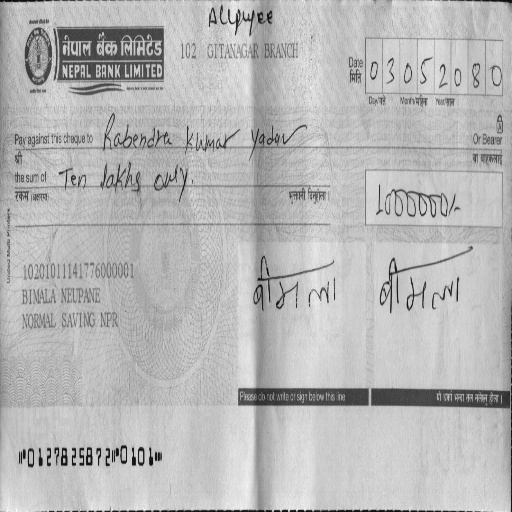 A/cpayee
नेपाल बैंक लिमिटेड
NEPAL BANK LIMITED
102 GITANAGAR BRANCH
Date
मिति
03052080
Day/गते Month/महिना Year/साल
Pay against this cheque to Rabendra Kumar Yadav Or Bearer
श्री वा वाहकलाई
the sum of Ten lakhs only.
रकम (अक्षरमा) भुक्तानी दिनुहोला।
1000000/-
United Multi Printers
10201011141776000001
BIMALA NEUPANE
NORMAL SAVING NPR
बीमला बीमला
Please do not write or sign below this line
⑈0127825872⑈0101⑈